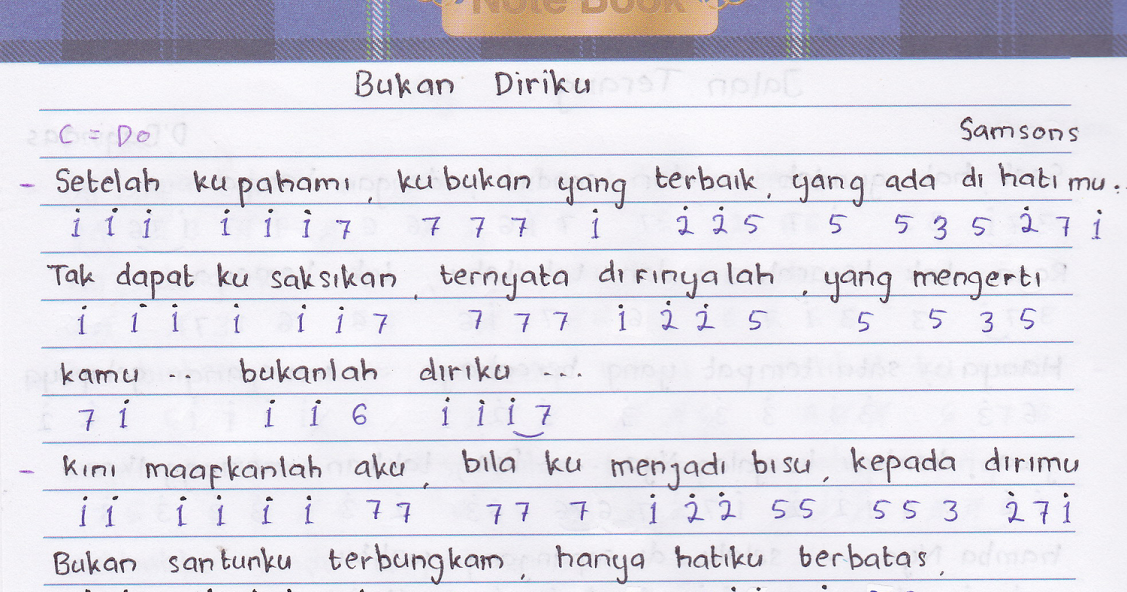 Note Book
Bukan Diriku
C = Do
Samsons
- Setelah kupahami, ku bukan yang terbaik, yang ada di hati mu..
i̇ i̇ i̇ i̇ i̇ i̇ 7 7 7 7 i̇ 2̇ 2̇ 5 5 5 3 5 2̇ 7 i̇
Tak dapat ku saksikan, ternyata dirinyalah, yang mengerti
i̇ i̇ i̇ i̇ i̇ i̇ 7 7 7 7 i̇ 2̇ 2̇ 5 5 5 3 5
kamu ... bukanlah diriku ...
7 i̇ i̇ i̇ 6 i̇ i̇ i̇ 7
- Kini maapkanlah aku, bila ku menjadi bisu, kepada dirimu
i̇ i̇ i̇ i̇ i̇ i̇ 7 7 7 7 7 i̇ 2̇ 2̇ 5 5 5 5 3 2̇ 7 i̇
Bukan santunku terbungkam, hanya hatiku berbatas,